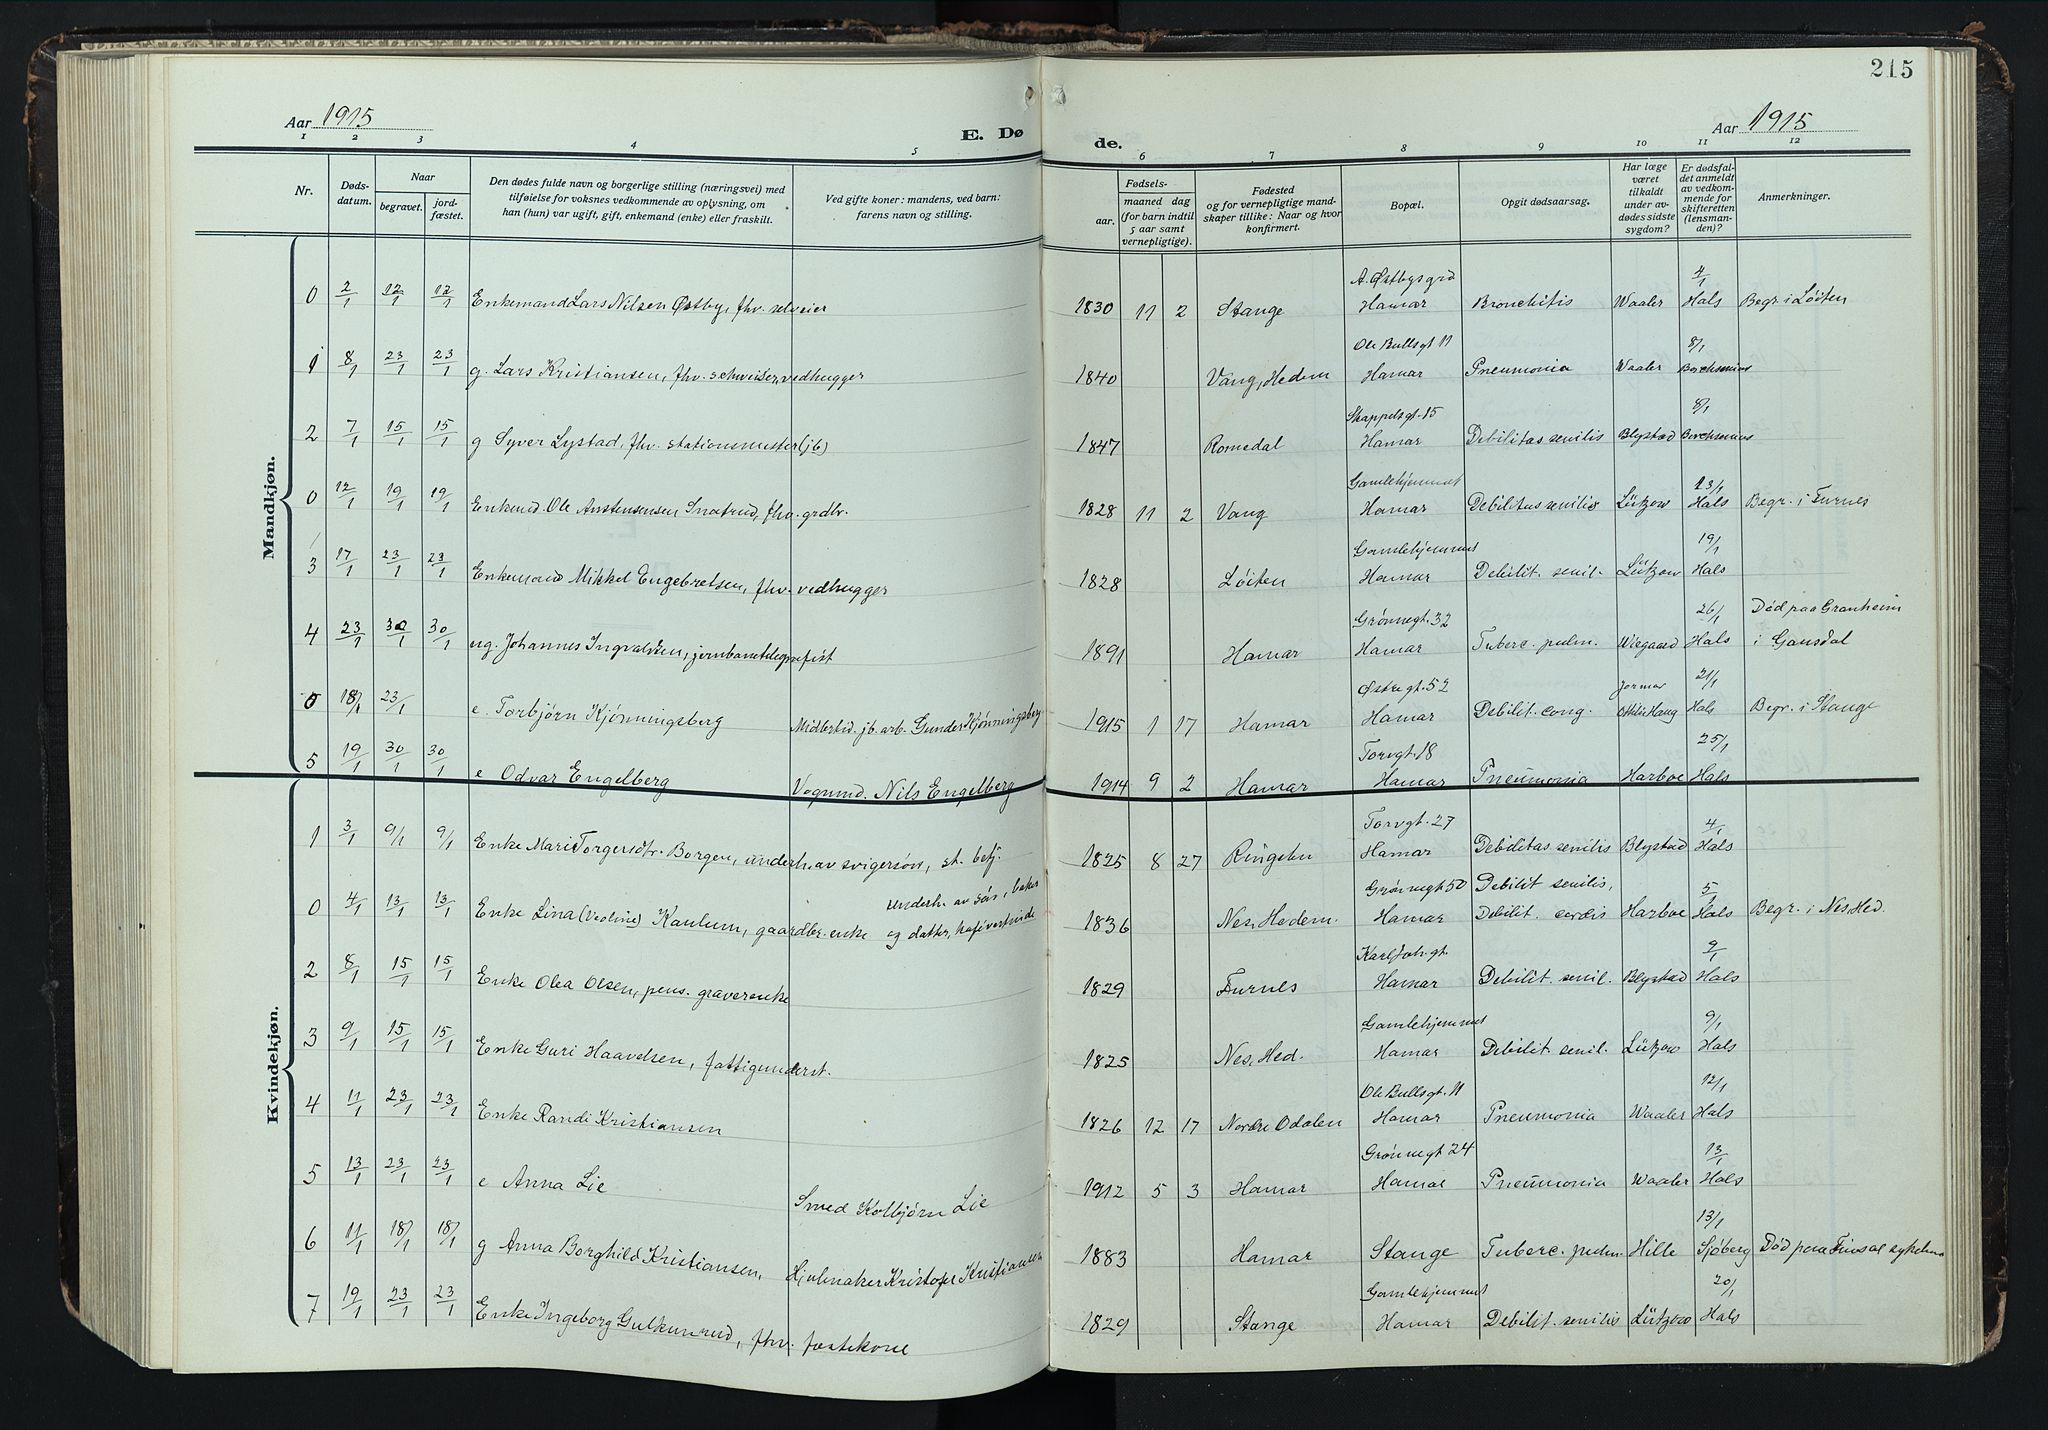 215
Aar 1915 E. Dø de. Aar 1915
1 2 3 4 5 6 7 8 9 10 11 12
Nr.
Døds-
datum.
Naar
begravet.
jord-
fæstet.
Den dødes fulde navn og borgerlige stilling (næringsvei) med
tilføielse for voksnes vedkommende av oplysning, om
han (hun) var ugift, gift, enkemand (enke) eller fraskilt.
Ved gifte koner: mandens, ved barn:
farens navn og stilling.
Fødsels-
aar. maaned dag
(for barn indtil
5 aar samt
vernepligtige).
Fødested
og for vernepligtige mand-
skaper tillike: Naar og hvor
konfirmert.
Bopæl.
Opgit dødsaarsag.
Har læge
været
tilkaldt
under av-
dødes sidste
sygdom?
Er dødsfal-
det anmeldt
av vedkom-
mende for
skifteretten
(lensman-
den)?
Anmerkninger.
Mandkjøn.
A. Østbys grd 4/1
0 2/1 12/1 12/1 Enkemand Lars Nilsen Østby, fhv. selveier 1830 11 2 Stange Hamar Bronchitis Waaler Hals Begr. i Løiten
Ole Bullsgt 11 8/1
1 8/1 23/1 23/1 g. Lars Kristiansen, fhv. schweiser, vedhugger 1840 Vang, Hedem Hamar Pneumonia Waaler Borchsenius
Skappelsgt. 15 8/1
2 7/1 15/1 15/1 g Syver Lystad, fhv. stationsmester (jb) 1847 Romedal Hamar Debilitas senilis Blystad Borchsenius
Gamlehjemmet 13/1
0 12/1 19/1 19/1 Enkemd. Ole Anstensensen Snatrud, fhv. grdbr. 1828 11 2 Vang Hamar Debilitas senilis Lützow Hals Begr. i Furnes
Gamlehjemmet 19/1
3 17/1 23/1 23/1 Enkemand Mikkel Engebretsen, fhv. vedhugger 1828 Løiten Hamar Debilit. senil. Lützow Hals
Grønnegt. 32 26/1 Død paa Granheim
4 23/1 30/1 30/1 ug. Johannes Ingvaldsen, jernbanetelegrafist 1891 Hamar Hamar Tuberc. pulm. Wiegaard Hals i Gausdal
Østregt. 52 Jormor 21/1
0 18/1 23/1 e. Torbjørn Kjønningsberg Midlertid. jb. arb. Gunder Kjønningsberg 1915 1 17 Hamar Hamar Debilit. cong. Ottilie Haug Hals Begr. i Stange
Torvgt. 18 25/1
5 19/1 30/1 30/1 e Odvar Engelberg Vognmd. Nils Engelberg 1914 9 2 Hamar Hamar Pneumonia Harboe Hals
Kvindekjøn.
Torvgt. 27 4/1
1 3/1 9/1 9/1 Enke Mari Torgersdtr. Borgen, underh. av svigersøn, st. betj. 1825 8 27 Ringebu Hamar Debilitas senilis Blystad Hals
underh. av søn, baker Grønnegt 50 Debilit senilis, 5/1
0 4/1 13/1 13/1 Enke Lina (Veoline) Kaulum, gaardbr. enke og datter, kafévertinde 1836 Nes, Hedem. Hamar Debilit. cordis Harboe Hals Begr. i Nes, Hed.
Karl Joh. gt. 9/1
2 8/1 15/1 15/1 Enke Olea Olsen, pens. graverenke 1829 Furnes Hamar Debilit. senil. Blystad Hals
Gamlehjemmet 9/1
3 9/1 15/1 15/1 Enke Guri Haavelsen, fattigunderst. 1825 Nes, Hed. Hamar Debilit. senil. Lützow Hals
Ole Bullsgt. 11 12/1
4 11/1 23/1 23/1 Enke Randi Kristiansen 1826 12 17 Nordre Odalen Hamar Pneumonia Waaler Hals
Grønnegt 24 13/1
5 13/1 23/1 23/1 e Anna Lie Smed Kolbjørn Lie 1912 5 3 Hamar Hamar Pneumonia Waaler Hals
13/1
6 11/1 18/1 18/1 g Anna Borghild Kristiansen, Hjulmaker Kristofer Kristiansen 1883 Hamar Stange Tuberc. pulm. Hille Sjøberg Død paa Finsal sykehus
Gamlehjemmet 20/1
7 19/1 23/1 23/1 Enke Ingeborg Gulkunrud, fhv. fæstekone 1829 Stange Hamar Debilit. senilis Lützow Hals